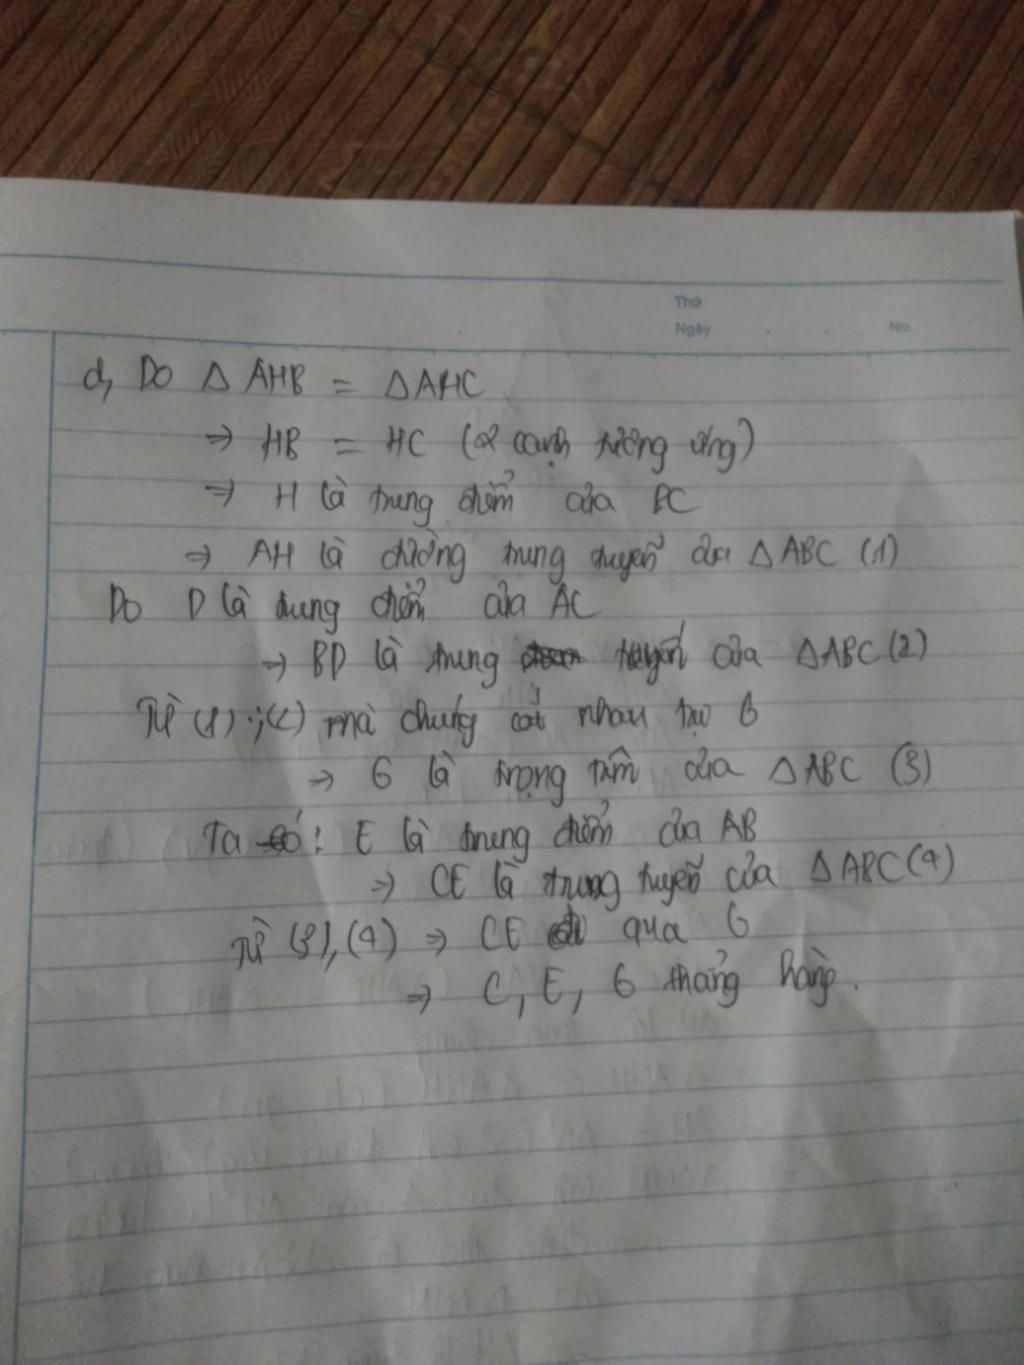 Thứ
Ngày No.
d, Do △ AHB = △AHC
⇒ HB = HC (2 cạnh tương ứng)
⇒ H là trung điểm của BC
⇒ AH là đường trung tuyến của △ABC (1)
Do D là trung điểm của AC
⇒ BD là trung tuyến của △ABC (2)
Từ (1);(2) mà chúng cắt nhau tại G
⇒ G là trọng tâm của △ABC (3)
Ta có: E là trung điểm của AB
⇒ CE là trung tuyến của △ABC (4)
Từ (3),(4) ⇒ CE đi qua G
⇒ C, E, G thẳng hàng.